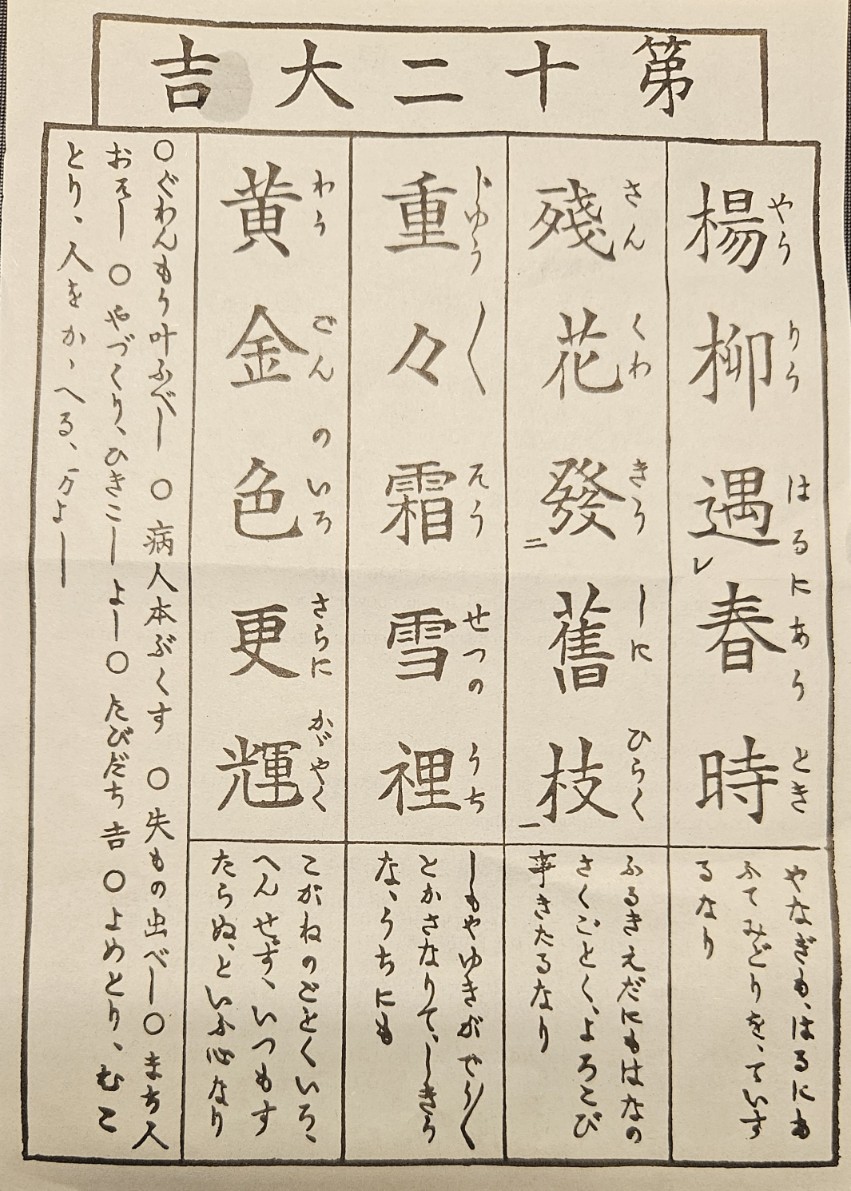 第十二大吉
やうりうはるにあうとき
楊柳遇レ春時
やなぎも、はるにも
ふてみどりを、ていす
るなり
さんくわきうしにひらく
殘花發二舊枝一
ふるきえだにもはなの
さくごとく、よろこび
事きたるなり
じゆう〱そうせつのうち
重々霜雪裡
しもやゆきがぢう〱
とかさなりて、しきう
な、うちにも
わうごんのいろさらにかゞやく
黄金色更輝
こがねのごとくいろ、
へんせず、いつもす
たらぬ、といふ心なり
○ぐわんもう叶ふべし ○病人本ぶくす ○失もの出べし○まち人
おそし ○やづくり、ひきこしよし○たびだち吉 ○よめとり、むこ
とり、人をかゝへる、万よし